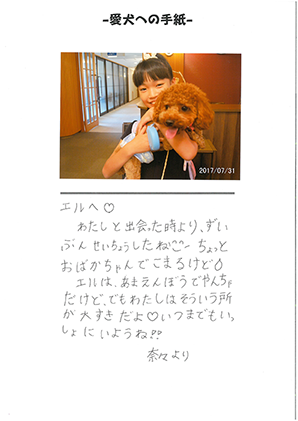 -愛犬への手紙-
2017/07/31
エルへ♡
わたしと出会った時より、ずい
ぶんせいちょうしたねこ〜ちょっと
おばかちゃんでこまるけど
エルは、あまえんぼうでやんちゃ
だけど、でもわたしはそういう所
が大すきだよ♡いつまでもいっ
しょにいようね!!
奈々より